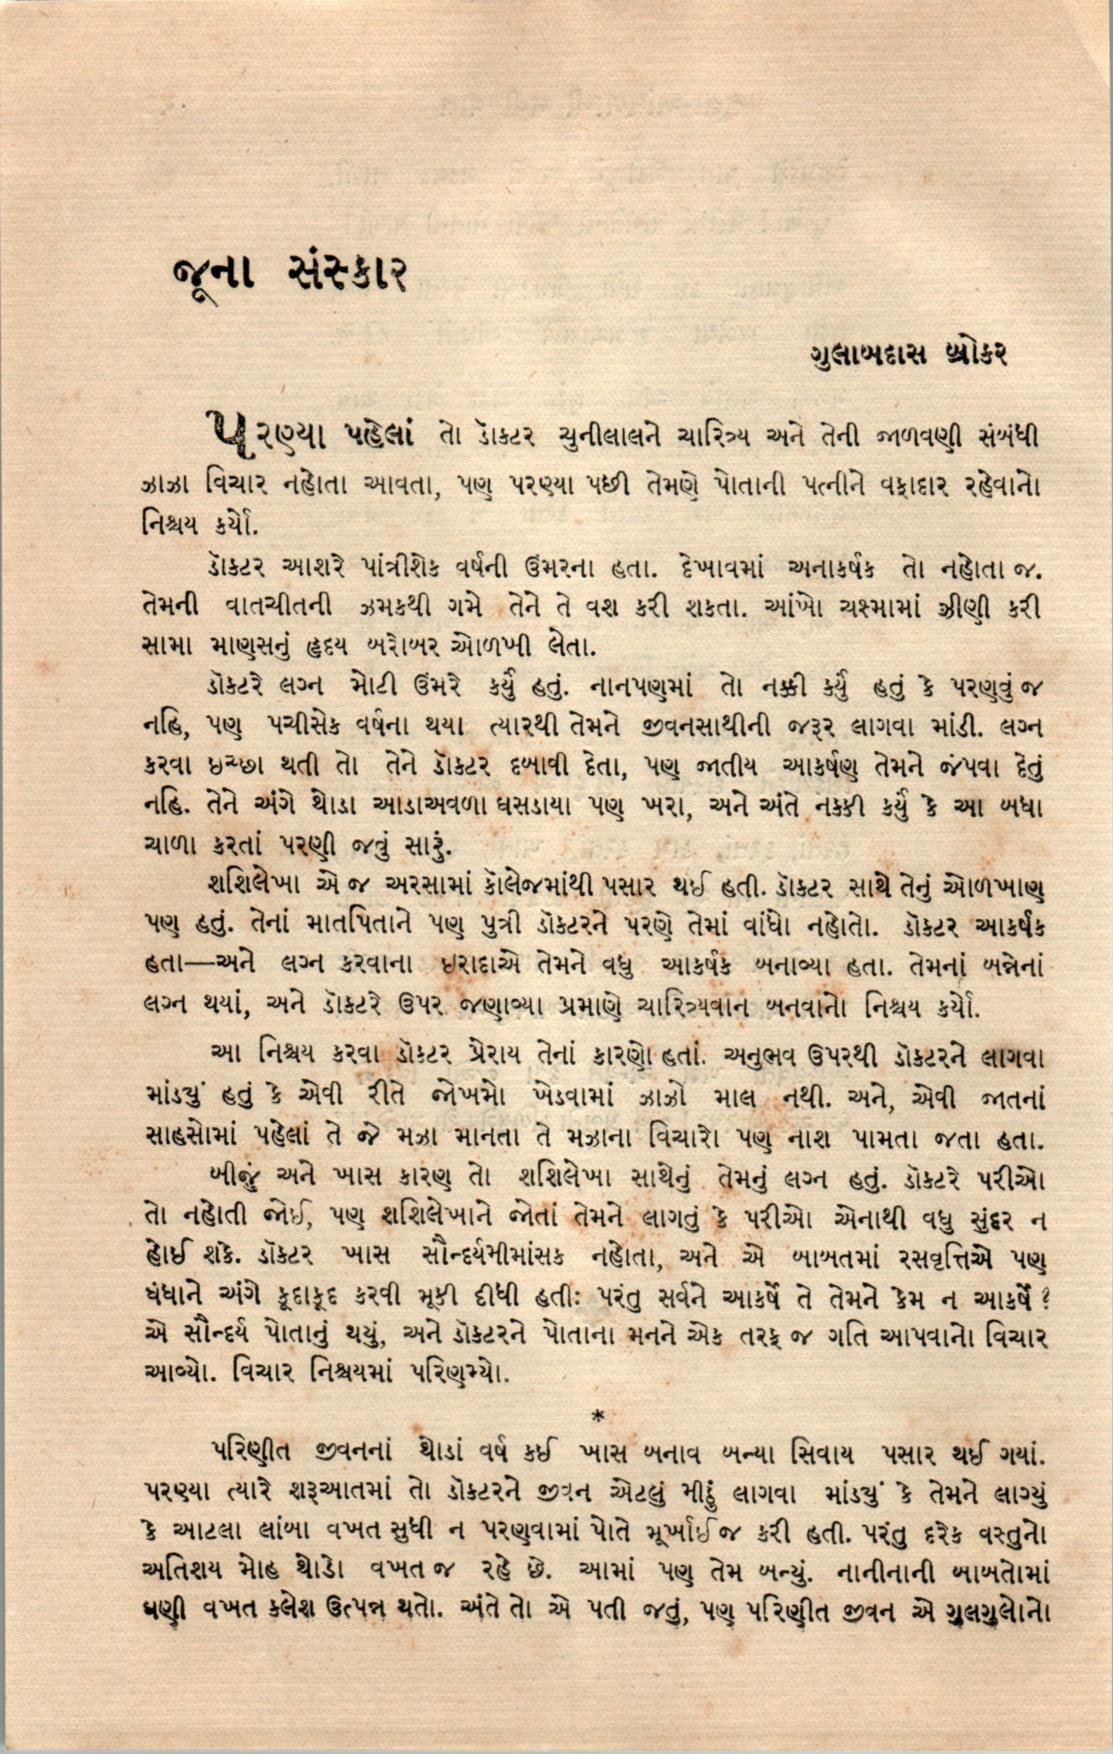 જૂના સંસ્કાર
ગુલાબદાસ બ્રોકર
પરણ્યા પહેલાં તો ડૉકટર ચુનીલાલને ચારિત્ર્ય અને તેની જાળવણી સંબંધી
ઝાઝા વિચાર નહોતા આવતા, પણ પરણ્યા પછી તેમણે પોતાની પત્નીને વફાદાર રહેવાનો
નિશ્ચય કર્યો.
ડૉકટર આશરે પાંત્રીશેક વર્ષની ઉંમરના હતા. દેખાવમાં અનાકર્ષક તો નહોતા જ.
તેમની વાતચીતની ઝમકથી ગમે તેને તે વશ કરી શકતા. આંખો ચશ્મામાં ઝીણી કરી
સામા માણસનું હૃદય બરોબર ઓળખી લેતા.
ડૉકટરે લગ્ન મોટી ઉંમરે કર્યું હતું. નાનપણમાં તો નક્કી કર્યું હતું કે પરણવું જ
નહિ, પણ પચીસેક વર્ષના થયા ત્યારથી તેમને જીવનસાથીની જરૂર લાગવા માંડી. લગ્ન
કરવા ઇચ્છા થતી તો તેને ડૉકટર દબાવી દેતા, પણ જાતીય આકર્ષણ તેમને જંપવા દેતું
નહિ. તેને અંગે થોડા આડાઅવળા ઘસડાયા પણ ખરા, અને અંતે નક્કી કર્યું કે આ બધા
ચાળા કરતાં પરણી જવું સારું.
શશિલેખા એ જ અરસામાં કૉલેજમાંથી પસાર થઈ હતી. ડૉકટર સાથે તેનું ઓળખાણ
પણ હતું. તેનાં માતપિતાને પણ પુત્રી ડૉકટરને પરણે તેમાં વાંધો નહોતો. ડૉકટર આકર્ષક
હતા—અને લગ્ન કરવાના ઇરાદાએ તેમને વધુ આકર્ષક બનાવ્યા હતા. તેમનાં બન્નેનાં
લગ્ન થયાં, અને ડૉકટરે ઉપર જણાવ્યા પ્રમાણે ચારિત્ર્યવાન બનવાનો નિશ્ચય કર્યો.
આ નિશ્ચય કરવા ડૉકટર પ્રેરાય તેનાં કારણો હતાં. અનુભવ ઉપરથી ડૉકટરને લાગવા
માંડ્યું હતું કે એવી રીતે જોખમો ખેડવામાં ઝાઝો માલ નથી. અને, એવી જાતનાં
સાહસોમાં પહેલાં તે જે મઝા માનતા તે મઝાના વિચારો પણ નાશ પામતા જતા હતા.
બીજું અને ખાસ કારણ તો શશિલેખા સાથેનું તેમનું લગ્ન હતું. ડૉકટરે પરીઓ
તો નહોતી જોઈ, પણ શશિલેખાને જોતાં તેમને લાગતું કે પરીઓ એનાથી વધુ સુંદર ન
હોઈ શકે. ડૉકટર ખાસ સૌન્દર્યમીમાંસક નહોતા, અને એ બાબતમાં રસવૃત્તિએ પણ
ધંધાને અંગે કૂદાકૂદ કરવી મૂકી દીધી હતી: પરંતુ સર્વને આકર્ષે તે તેમને કેમ ન આકર્ષે?
એ સૌન્દર્ય પોતાનું થયું, અને ડૉકટરને પોતાના મનને એક તરફ જ ગતિ આપવાનો વિચાર
આવ્યો. વિચાર નિશ્ચયમાં પરિણમ્યો.
*
પરિણીત જીવનનાં થોડાં વર્ષ કઈ ખાસ બનાવ બન્યા સિવાય પસાર થઈ ગયાં.
પરણ્યા ત્યારે શરૂઆતમાં તો ડૉકટરને જીવન એટલું મીઠું લાગવા માંડ્યું કે તેમને લાગ્યું
કે આટલા લાંબા વખત સુધી ન પરણવામાં પોતે મૂર્ખાઈ જ કરી હતી. પરંતુ દરેક વસ્તુનો
અતિશય મોહ થોડો વખત જ રહે છે. આમાં પણ તેમ બન્યું. નાનીનાની બાબતોમાં
ઘણી વખત કલેશ ઉત્પન્ન થતો. અંતે તો એ પતી જતું, પણ પરિણીત જીવન એ ગુલગુલોનો